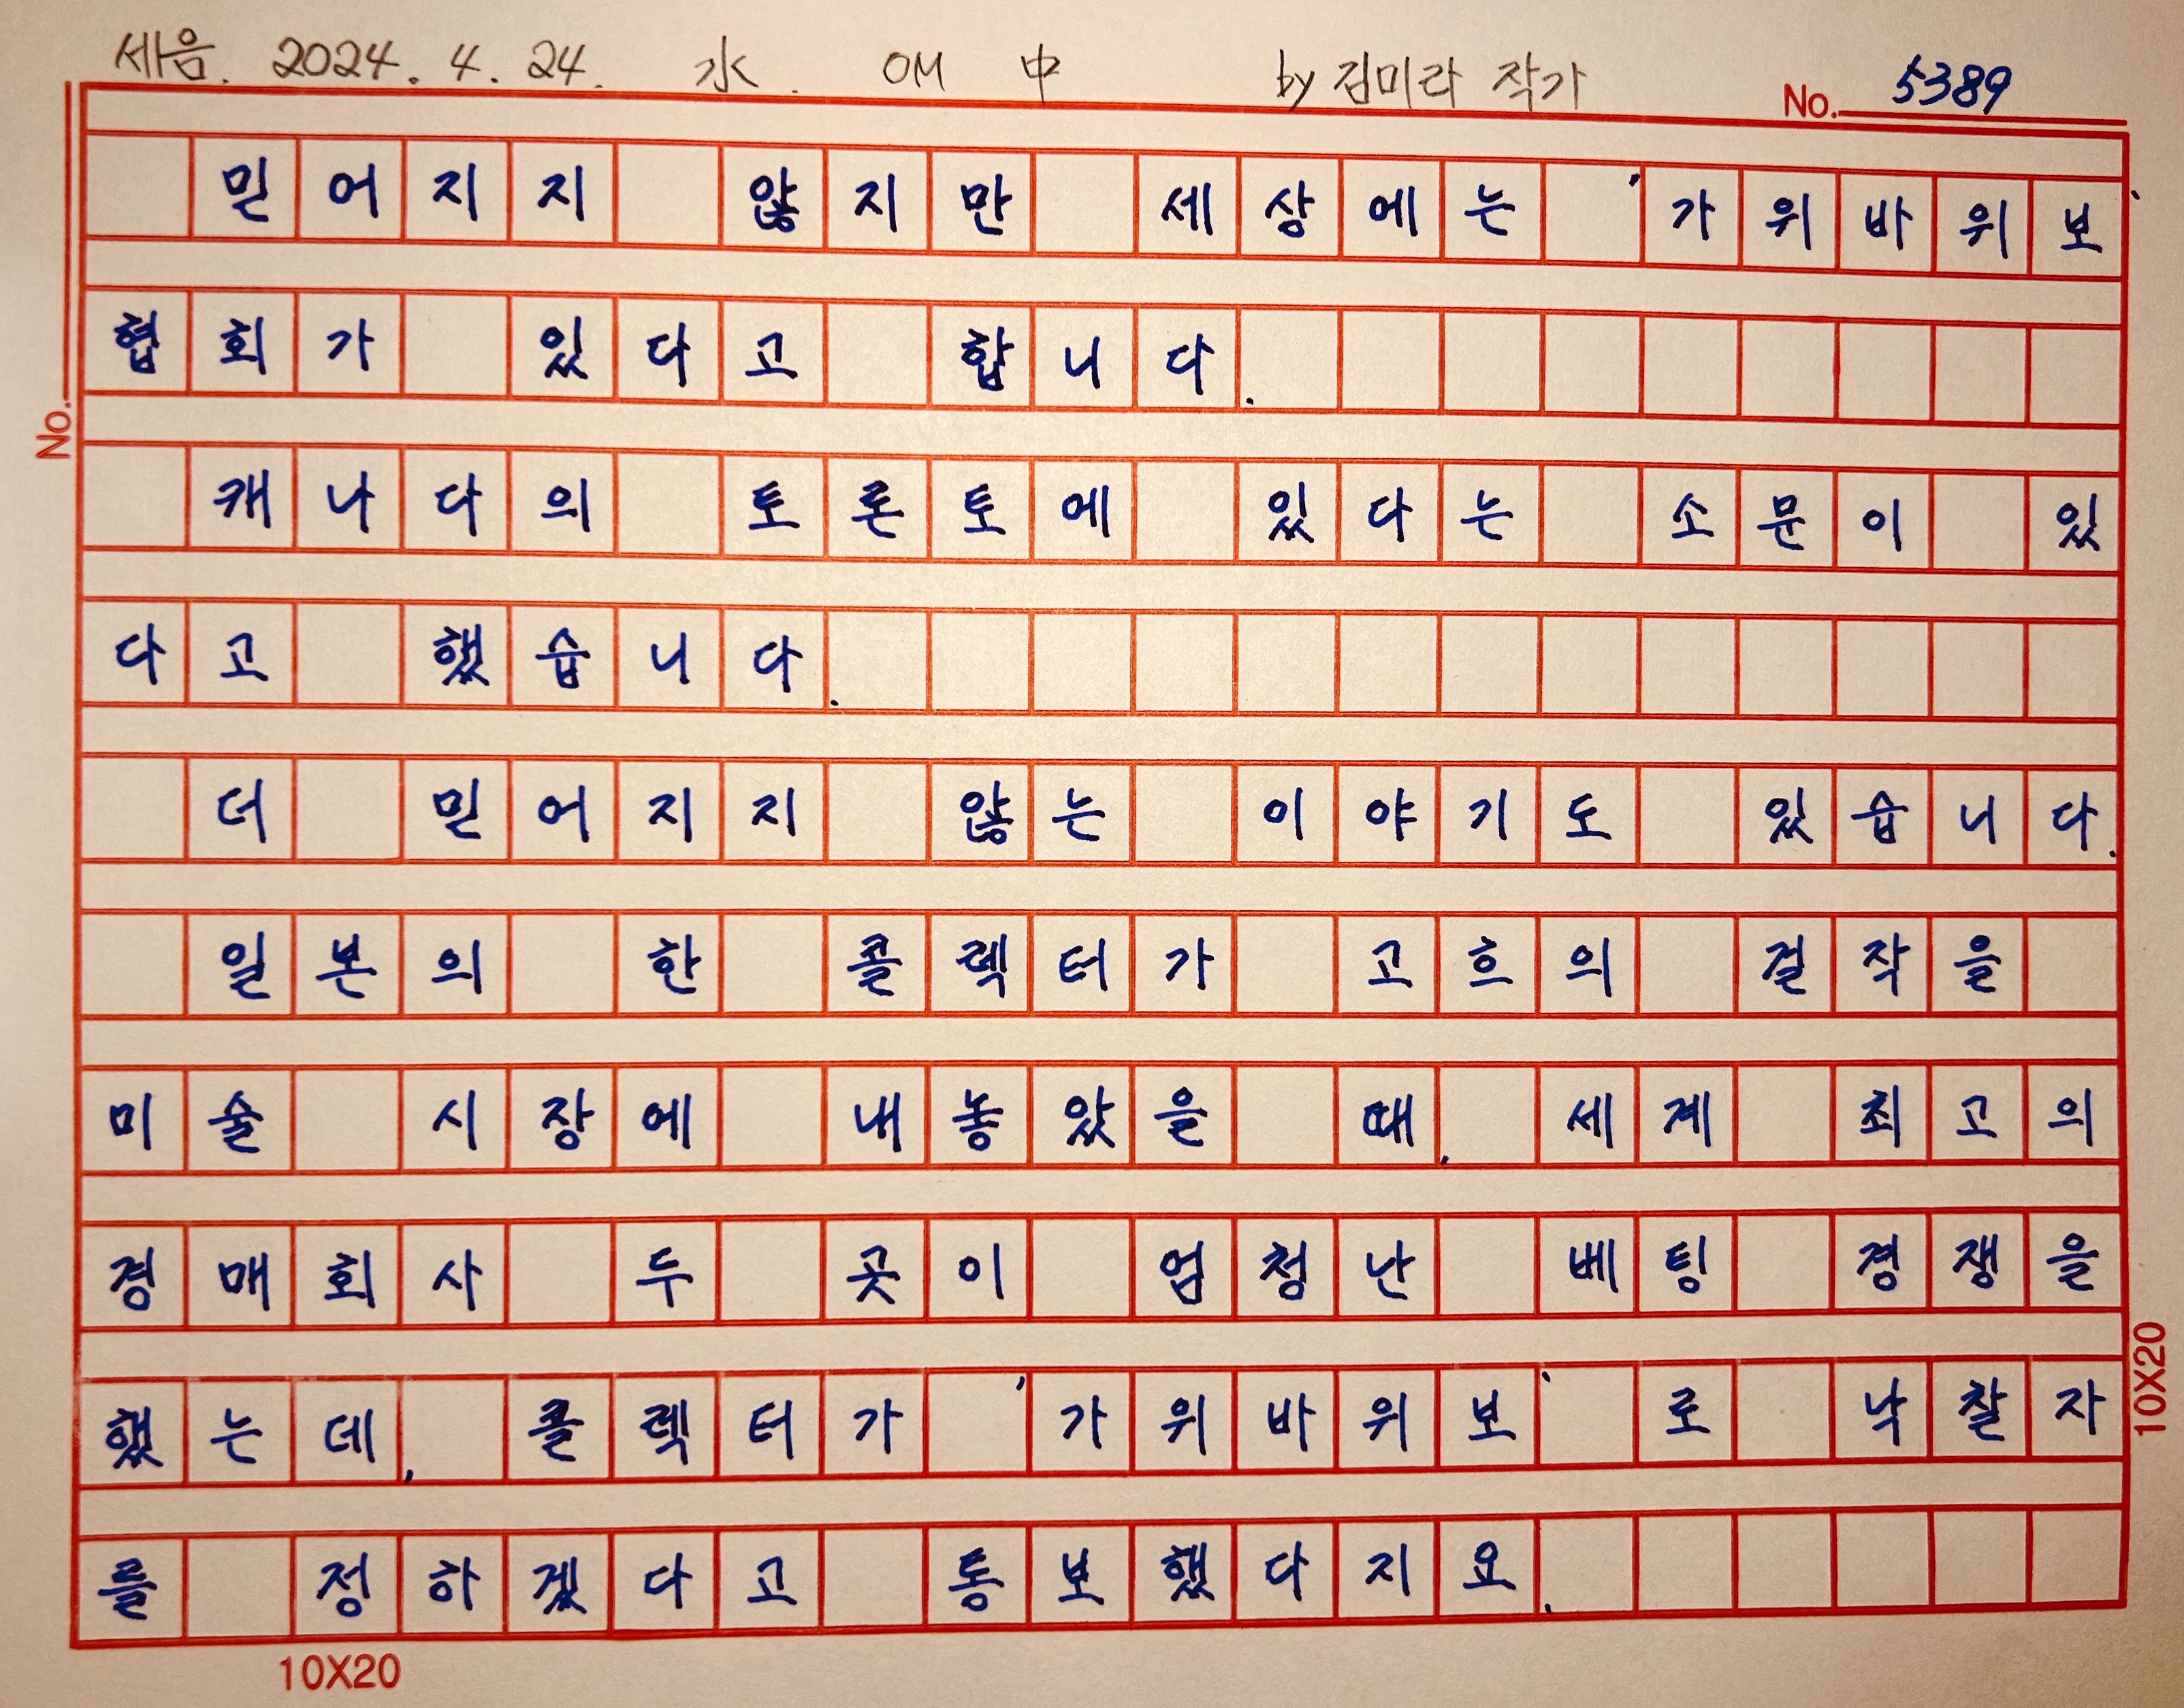 세음. 2024. 4. 24. 水. OM 中 by 김미라 작가
No. 5389
믿어지지 않지만 세상에는 '가위바위보'
협회가 있다고 합니다.
No.
캐나다의 토론토에 있다는 소문이 있
다고 했습니다.
더 믿어지지 않는 이야기도 있습니다.
일본의 한 콜렉터가 고흐의 걸작을
미술 시장에 내놓았을 때, 세계 최고의
경매회사 두 곳이 엄청난 베팅 경쟁을
했는데, 콜렉터가 '가위바위보' 로 낙찰자
를 정하겠다고 통보했다지요.
10X20
10X20